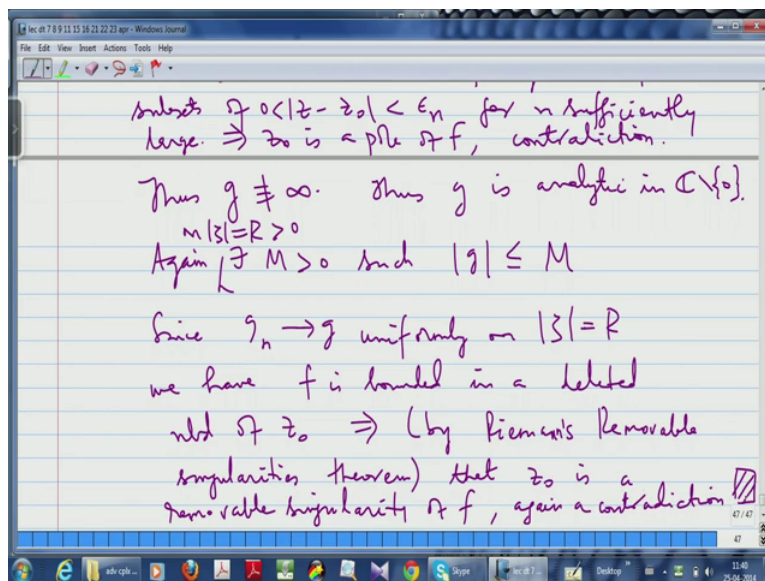 lec dt 7 8 9 11 15 16 21 22 23 apr - Windows Journal
File Edit View Insert Actions Tools Help
subsets of 0<|z-z₀|<ϵₙ for n sufficiently
large. ⇒ z₀ is a pole of f, contradiction.
Thus g ≢ ∞. Thus g is analytic in ℂ\{0}.
on |ζ|=R>0
Again ∃ M>0 such |g| ≤ M
Since gₙ → g uniformly on |ζ|=R
we have f is bounded in a deleted
nbd of z₀ ⇒ (by Riemann's Removable
singularities theorem) that z₀ is a
removable singularity of f, again a contradiction
47 / 47
47
adv cplx ...
Skype
lec dt 7 ...
Desktop
11:40
25-04-2014